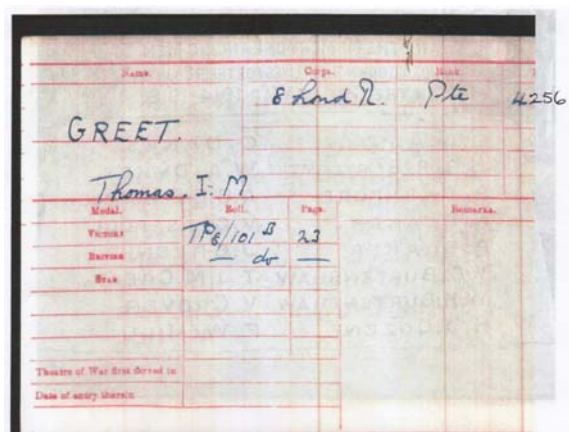 Name. Corps. Rank.
8 Lond R. Pte 4256
GREET.
Thomas. I. M
Medal. Roll. Page. Remarks.
Victory TP8/101 B 23
British — do —
Star
Theatre of War first served in
Date of entry therein